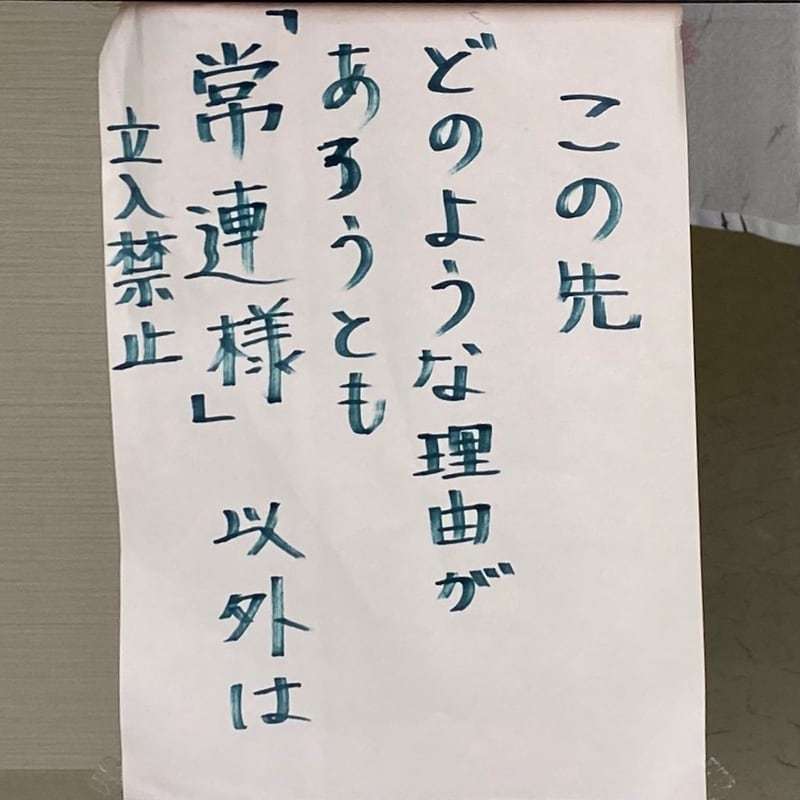 この先
どのような理由が
あろうとも
「常連様」以外は
立入禁止